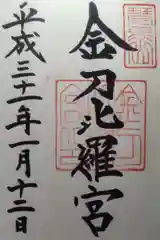 金刀比羅宮
平成三十一年一月十二日